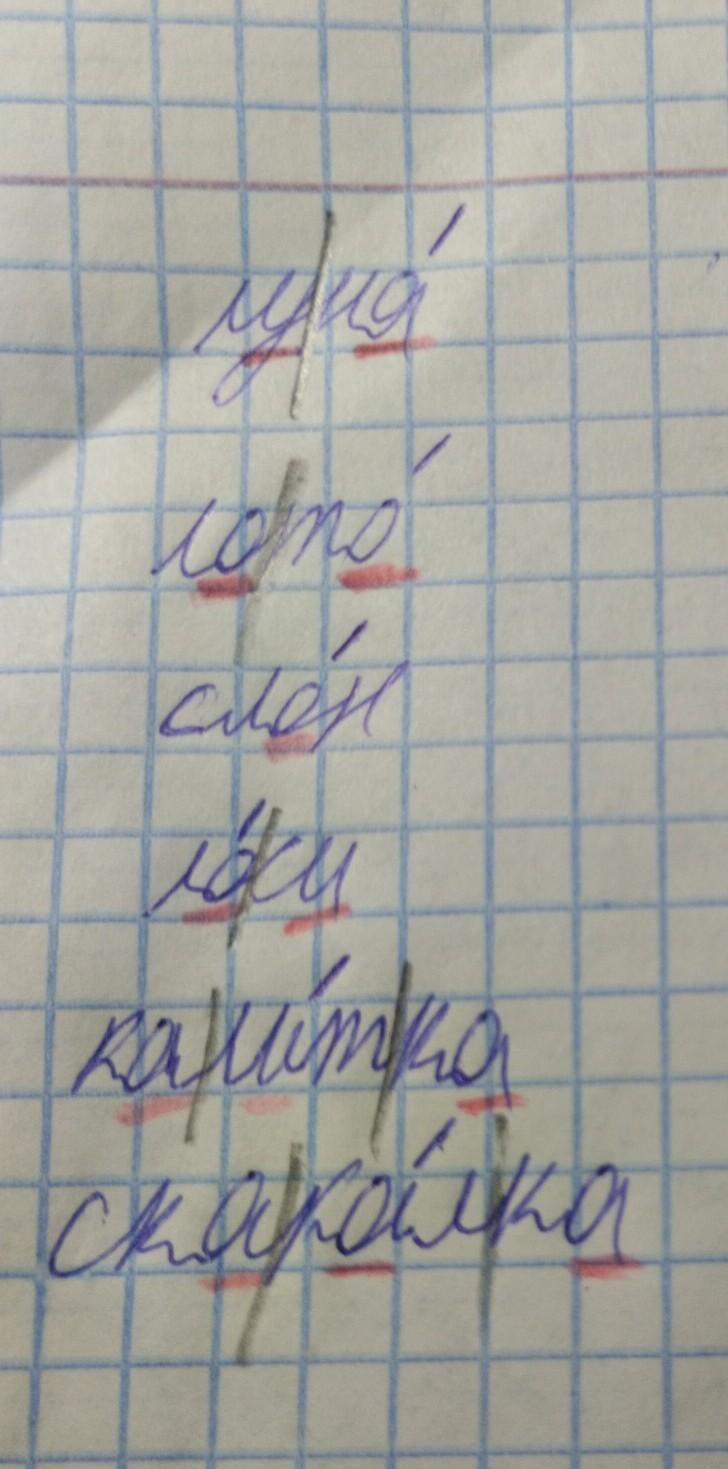 лу/на́
ло/то́
сло́н
ло́/си
ка/ли́т/ка
ска/ка́л/ка